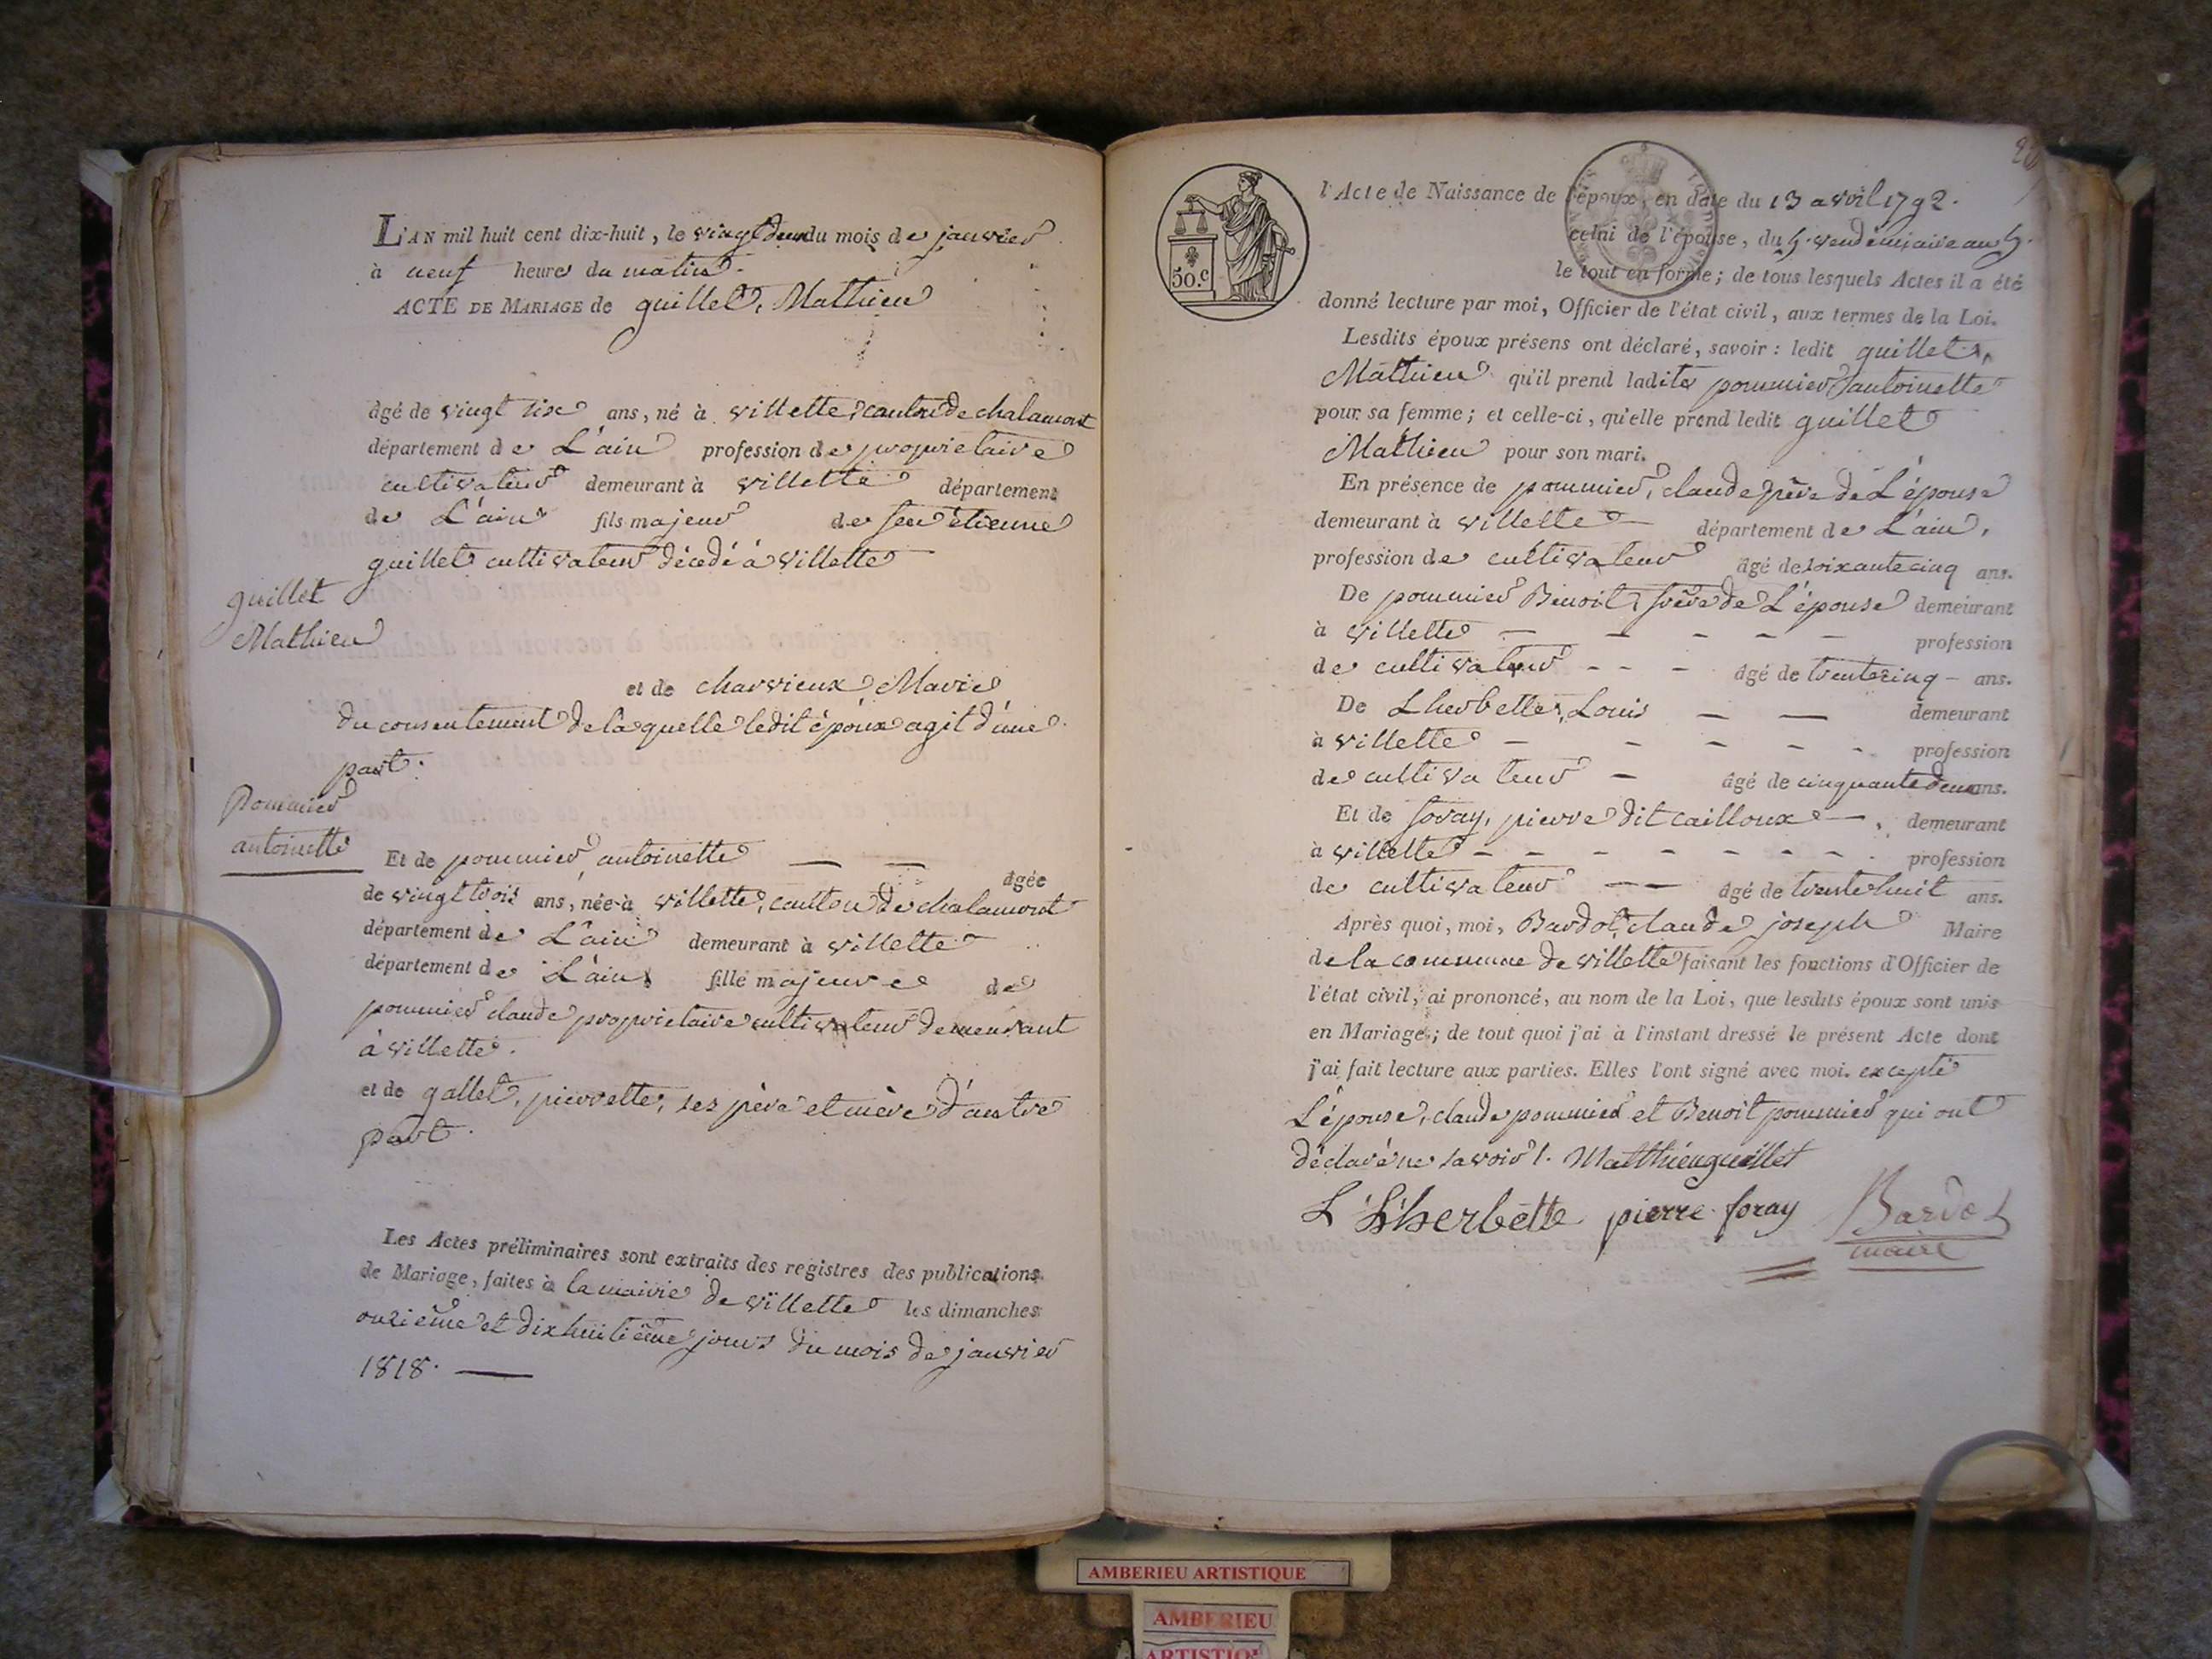 L'AN mil huit cent dix-huit, le vingt deux du mois de janvier
à neuf heures du matin.
ACTE DE MARIAGE de guillet, Mathieu
âgé de vingt six ans, né à villette, canton de chalamont
département de L'ain profession de proprietaire
cultivateur demeurant à villette département
de L'ain fils majeur de feu étienne
guillet cultivateur décédé à villette
guillet
Mathieu
et de charvieux Marie
du consentement de laquelle ledit époux agit d'une
part.
Pommier
antoinette
Et de pommier, antoinette — — âgée
de vingt trois ans, née à villette, canton de chalamont
département de L'ain demeurant à villette
département de L'ain fille majeure de
pommier claude proprietaire cultivateur demeurant
à villette.
et de gallet, pierrette, ses père et mère d'autre
part.
Les Actes préliminaires sont extraits des registres des publications
de Mariage, faites à la mairie de villette les dimanches
onzième et dixhuitième jours du mois de janvier
1818. —
50.c
l'Acte de Naissance de l'époux, en date du 13 avril 1792.
celui de l'épouse, du 5. vendémiaire an 5.
le tout en forme; de tous lesquels Actes il a été
donné lecture par moi, Officier de l'état civil, aux termes de la Loi.
Lesdits époux présens ont déclaré, savoir: ledit guillet,
Mathieu qu'il prend ladite pommier antoinette
pour sa femme; et celle-ci, qu'elle prend ledit guillet
Mathieu pour son mari.
En présence de pommier, claude père de L'épouse
demeurant à villette — département de L'ain,
profession de cultivateur âgé de soixante cinq ans.
De pommier Benoit, frère de L'épouse demeurant
à villette — — — — — profession
de cultivateur - - - âgé de trente cinq - ans.
De Lherbette, Louis — — demeurant
à villette — - - - - profession
de cultivateur — âgé de cinquante deux ans.
Et de foray, pierre dit cailloux —, demeurant
à villette - - - - - - - - profession
de cultivateur — — âgé de trente huit ans.
Après quoi, moi, Bardot, claude joseph Maire
de la commune de villette faisant les fonctions d'Officier de
l'état civil, ai prononcé, au nom de la Loi, que lesdits époux sont unis
en Mariage; de tout quoi j'ai à l'instant dressé le présent Acte dont
j'ai fait lecture aux parties. Elles l'ont signé avec moi. excepté
L'épouse, claude pommier et Benoit pommier qui ont
déclaré ne savoir. Matthieu guillet
L Lherbette pierre foray Bardot
maire
AMBERIEU ARTISTIQUE
AMBERIEU
ARTISTIQUE